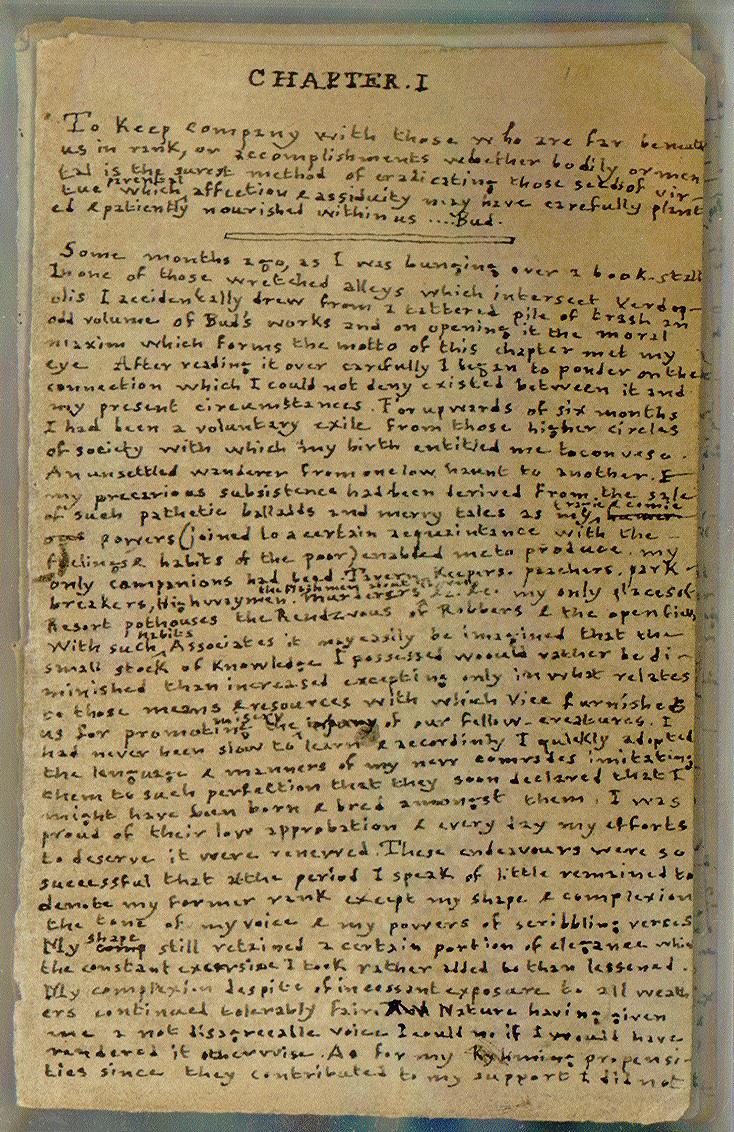 CHAPTER. I
To Keep company with those who are far beneath
us in rank, or accomplishments whether bodily or men
tal is the surest method of eradicating those seeds of vir-
parental
tue which affection & assiduity may have carefully plant
ed & patiently nourished within us .... Bud.
Some months ago, as I was lunging over a book-stall
In one of those wretched alleys which intersect Verdop-
olis I accidentally drew from a tattered pile of trash an
odd volume of Bud's works and on opening it the moral
maxim which forms the motto of this chapter met my
eye. After reading it over carefully I began to ponder on the
connection which I could not deny existed between it and
my present circumstances. For upwards of six months
I had been a voluntary exile from those higher circles
of society with which my birth entitled me to converse.
An unsettled wanderer from one low haunt to another.
my precarious subsistence had been derived from the sale
tragic & comic
of such pathetic ballads and merry tales as my
powers (joined to a certain acquaintance with the
feelings & habits of the poor) enabled me to produce. my
only companions had been Tavern Keepers. poachers. park-
breakers, Highwaymen. Murderers &c. &c. my only places of
Resort pothouses the Rendzvous of Robbers & the open fields
habits
With such Associates it may easily be imagined that the
small stock of Knowledge I possessed woould rather be di-
minished than increased excepting only in what relates
to those means & resources with which Vice furnishes
misery
us for promoting the infamy of our fellow-creatures. I
had never been slow to learn & accordinly I quickly adopted
the language & manners of my new comrades imitating
them to such perfection that they soon declared that I
might have been born & bred amongst them. I was
proud of their low approbation & every day my efforts
to deserve it were renewed. These endeavours were so
successful that at the period I speak of little remained to
denote my former rank except my shape & complexion
the tone of my voice & my powers of scribbling verses
shape
My comp still retained a certain portion of elegance which
the constant excersise I took rather added to than lessened.
My complexion despite of incessant exposure to all weath
ers continued tolerably fair. Nature having given
me a not disagreealle voice I could no if I would have
rendered it otherwise. As for my Ryhming propensi-
ties since they contributed to my support I did not